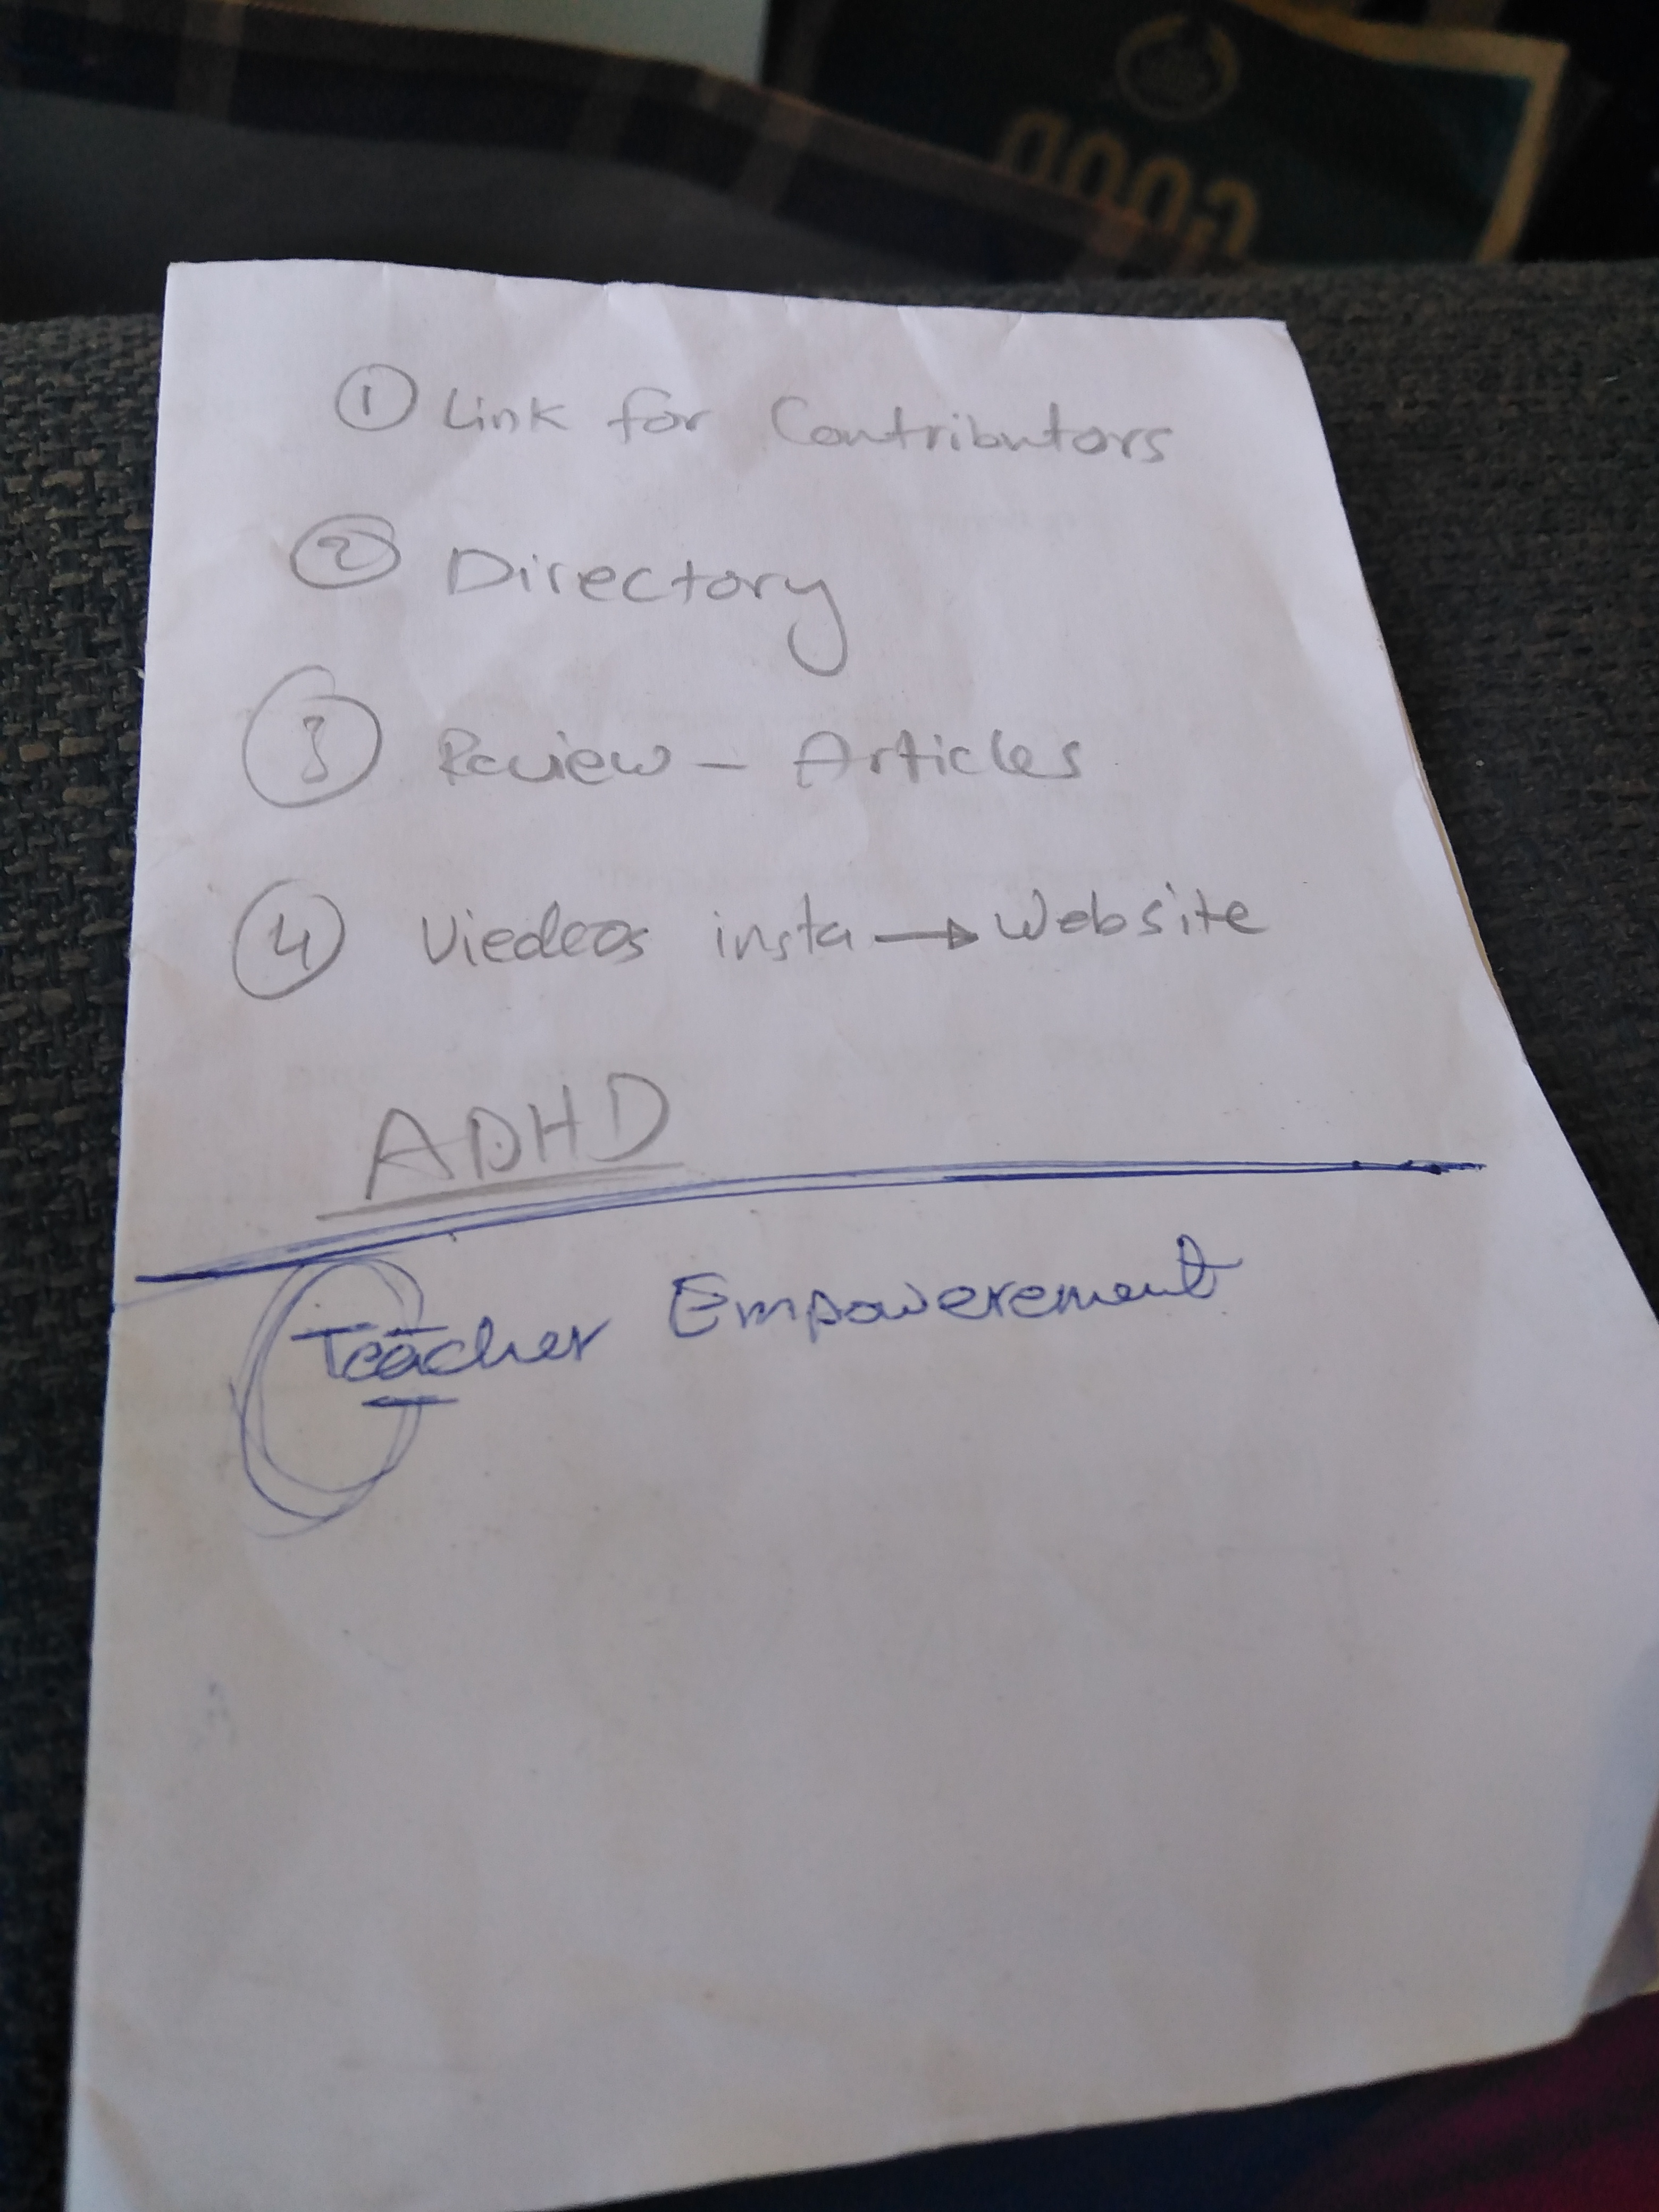 GOOD
① Link for Contributors
② Directory
③ Review – Articles
④ Viedeos insta → Website
ADHD
Teacher Empowerement